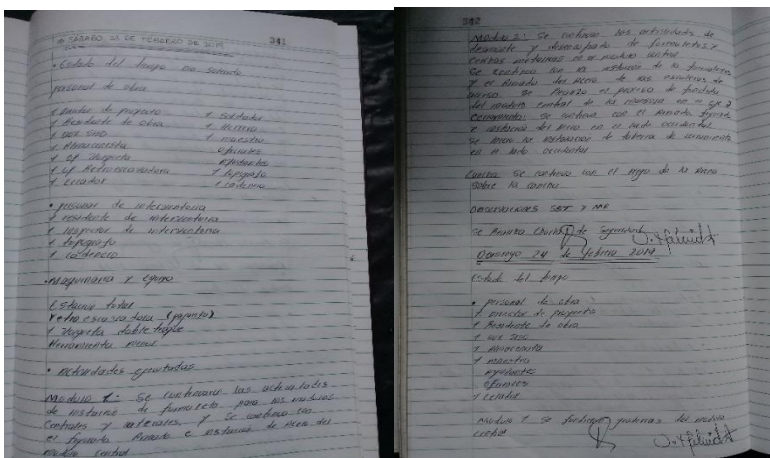 SÁBADO 23 DE FEBRERO DE 2019
341
• Estado del tiempo: soleado
personal de obra
1 Director de proyecto
1 Residente de obra
1
1 Almacenista
1 Of Volqueta
1 Of Retroexcavadora
1 celador
1 Soldador
1 Herrero
1 maestro
Oficiales
Ayudantes
1 topografo
1 cadenero
• personal de interventoria
1 residente de interventoria
1 inspector de interventoria
1 topografo
1 cadenero
• Maquinaria y equipo
Estacion total
retroexcavadora (pajarita)
1 Volqueta doble troque
Herramienta menor
• Actividades ejecutadas
Modulo 1: Se continuaron las actividades
de de formaleta para los modulos
centrales y laterales, y se continuo con
el Armado e de Acero del
modulo central
342
Modulo 2: Se continuo las actividades de
desmonte y de formaletas y
en el modulo central
Se continuo con la de la formaleta
y el Armado del Acero de las escaleras de
acceso. Se el proceso de fundida
del modulo central de la en el eje 2
se continuo con el Armado,
y del Acero en el lado occidental
Se la instalacion de tuberia de
en el lado occidental
Cancha: Se continuo con el riego de la Arena
sobre la cancha
Observaciones SST y MA
Se Realiza Charla de Seguridad
Domingo 24 de febrero 2019
Estado del tiempo
• personal de obra
1 director de proyecto
1 Residente de obra
1
1 Almacenista
1 maestro
Ayudantes
Oficiales
1 celador
Modulo 1 se del modulo
central